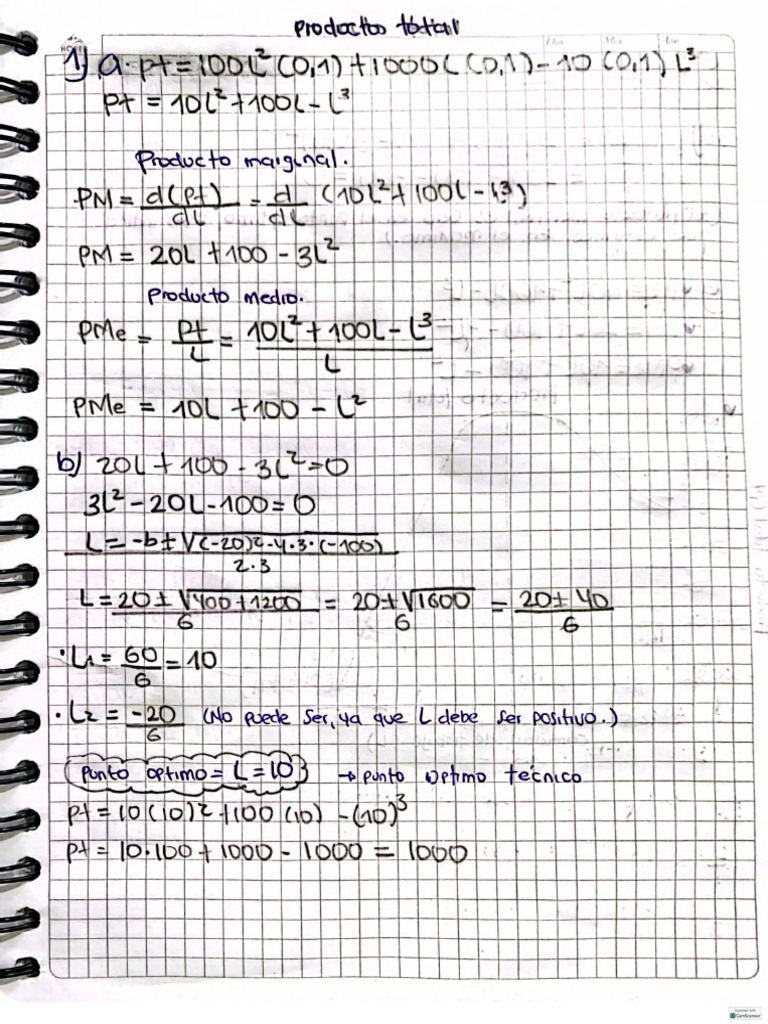 Producto total
1) a. pt = 100L² (0,1) + 1000L (0,1) - 10 (0,1) L³
pt = 10L² + 100L - L³
Producto marginal.
PM = d(pt)/dL = d/dL (10L² + 100L - L³)
PM = 20L + 100 - 3L²
Producto medio.
PMe = pt/L = 10L² + 100L - L³/L
PMe = 10L + 100 - L²
b) 20L + 100 - 3L² = 0
3L² - 20L - 100 = 0
L = -b ± √(-20)² - 4·3·(-100)/2·3
L = 20 ± √400 + 1200/6 = 20 ± √1600/6 = 20 ± 40/6
·L₁ = 60/6 = 10
·L₂ = -20/6 (No puede ser, ya que L debe ser positivo.)
punto optimo = L = 10 → punto optimo técnico
pt = 10(10)² + 100(10) - (10)³
pt = 10·100 + 1000 - 1000 = 1000
CamScanner